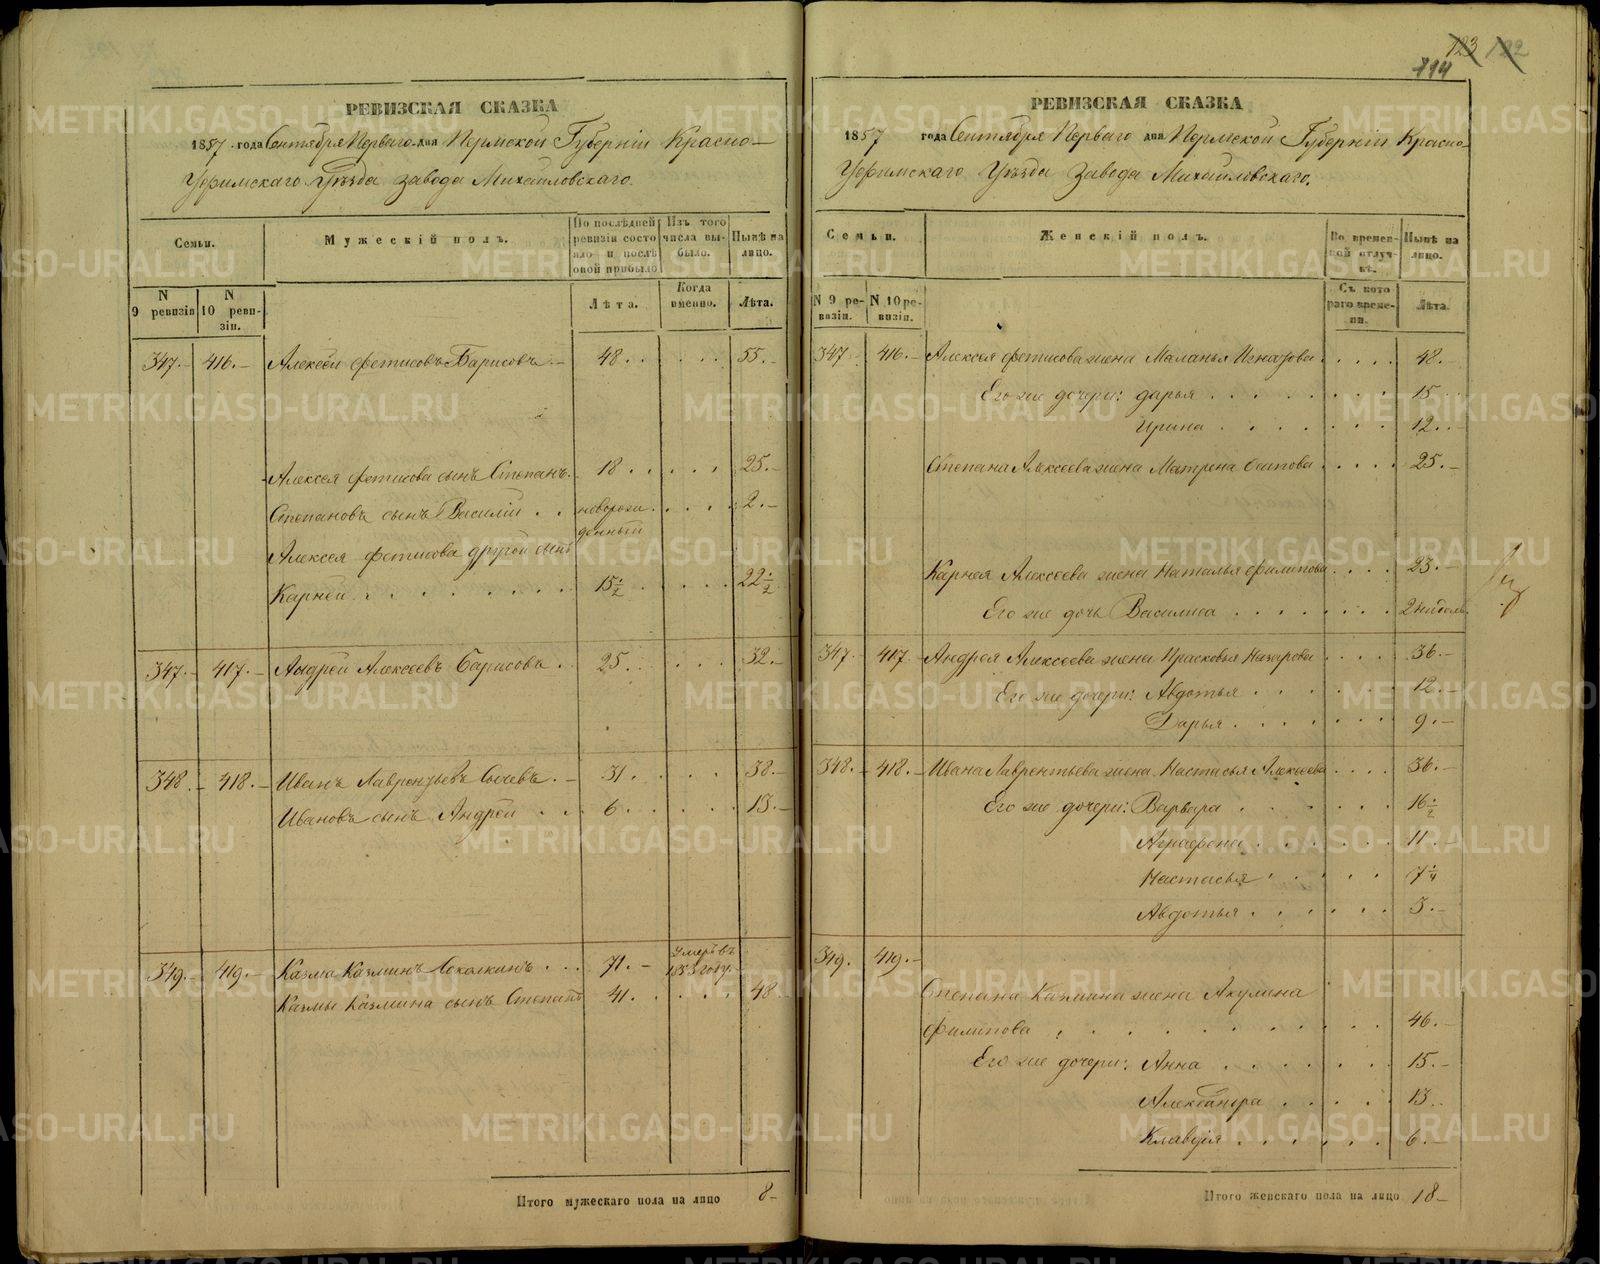 123 122
114
РЕВИЗСКАЯ СКАЗКА
1857 года Сентября Перваго дня Пермской Губерніи Красно-
Уфимскаго Уѣзда Завода Михайловскаго.
Семьи.
Мужескій полъ.
По послѣдней ревизіи состояло и послѣ оной прибыло
Изъ того числа выбыло.
Нынѣ на лицо.
N 9 ревизіи
N 10 ревизіи.
Лѣта.
Когда именно.
Лѣта.
347. 416. Алексѣй Фетисовъ Барисовъ 48 55.
Алексея Фетисова сынъ Степанъ 18 25.
Степановъ сынъ Василій новорожденный 2.
Алексея Фетисова другой сынъ
Карнѣй 15 1/2 22 1/2
347. 417. Андрей Алексеевъ Барисовъ 25 32.
348. 418. Иванъ Лаврентьевъ Сычевъ 31 38.
Ивановъ сынъ Андрей 6 13.
349. 419. Казма Казминъ 71. Умеръ въ 1853 году.
Казмы Казмина сынъ Степанъ 41. 48
Итого мужескаго пола на лицо 8
РЕВИЗСКАЯ СКАЗКА
1857 года Сентября Перваго дня Пермской Губерніи Красно-
Уфимскаго Уѣзда Завода Михайловскаго.
Семьи.
Женскій полъ.
Во временной отлучкѣ.
Нынѣ на лицо.
N 9 ревизіи.
N 10 ревизіи.
Съ котораго времени.
Лѣта.
347 416. Алексея Фетисова жена Маланья Игнатова 48.
Его же дочери: Дарья 15
Ирина 12.
Степана Алексеева жена Матрена Осипова 25.
Карнея Алексеева жена Наталья Филипова 23.
Его же дочь Василиса 2 недѣль.
347. 417 Андрея Алексеева жена Прасковья Назарова 36.
Его же дочери: Авдотья 12.
Дарья 9.
348. 418. Ивана Лаврентьева жена Настасья Алексеева 36.
Его же дочери: Варвара 16 1/2
Аграфена 11.
Настасья 7 1/4
Авдотья 3.
349. 419.
Степана Казмина жена Акулина
Филипова 46.
Его же дочери: Анна 15.
Александра 13.
Клавдія 6.
Итого женскаго пола на лицо 18
METRIKI.GASO-URAL.RU